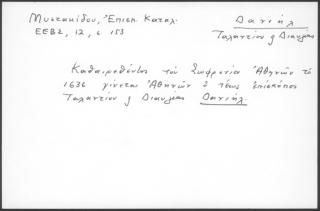 Μυστακίδου, Ἐπισκ. Καταλ.
ΕΕΒΣ, 12, σ 153
Δανιήλ
Ταλαντίου ἤ Διαυλείας
Καθαιρεθέντος τοῦ Σωφρονίου Ἀθηνῶν τὸ
1636 γίνεται Ἀθηνῶν ὁ τέως ἐπίσκοπος
Ταλαντίου ἤ Διαυλείας Δανιήλ.